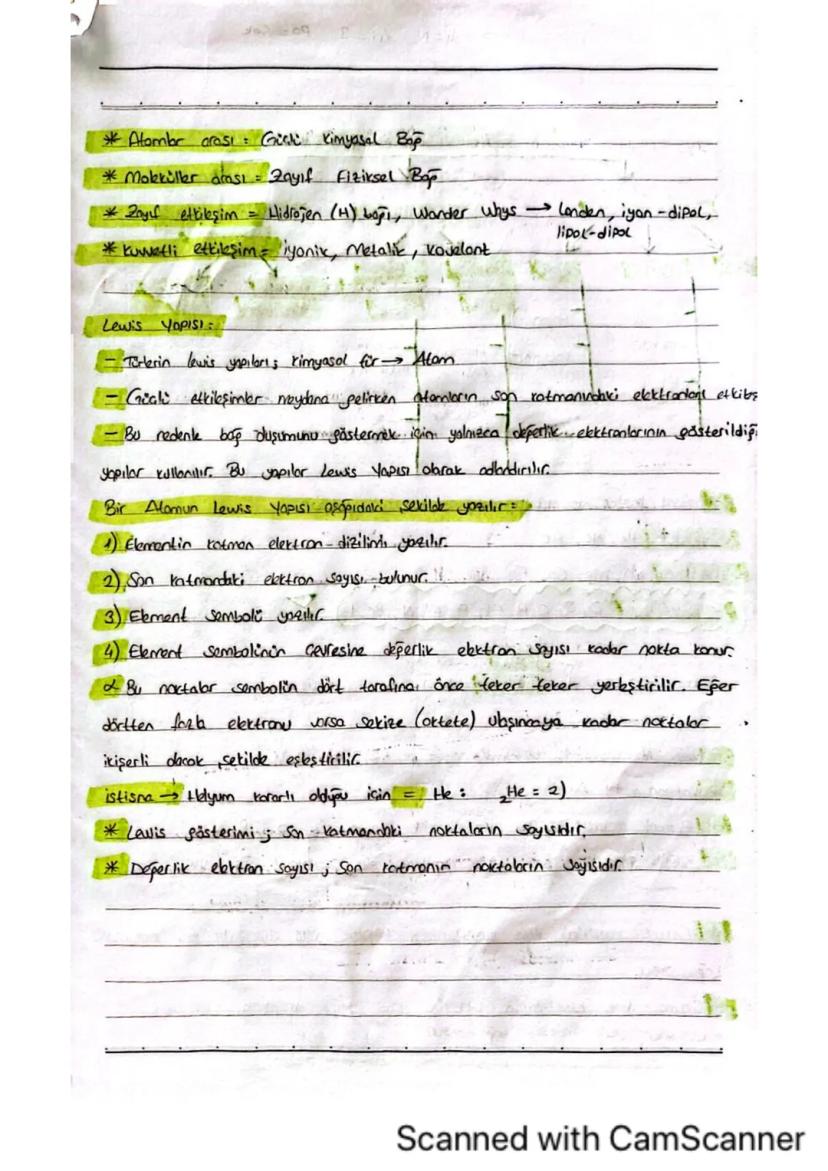 * Atomlar arası = Güçlü kimyasal Bağ
* Moleküller arası = Zayıf Fiziksel Bağ
* Zayıf etkileşim = Hidrojen (H) bağı, Wander Whys → London, iyon-dipol,
lipol-dipol
* Kuvvetli etkileşim = iyonik, Metalik, kovalent
Lewis Yapısı:
- Türlerin lewis yapıları; kimyasal tür → Atom
- Güçlü etkileşimler meydana gelirken atomların son katmanındaki elektronları etkileş
- Bu nedenle bağ oluşumunu göstermek için yalnızca değerlik elektronlarının gösterildiği
yapılar kullanılır. Bu yapılar Lewis Yapısı olarak adlandırılır.
Bir Atomun Lewis Yapısı aşağıdaki şekilde yazılır:
1) Elementin katman elektron-dizilimi yazılır.
2) Son katmandaki elektron sayısı bulunur.
3) Element sembolü yazılır.
4) Element sembolünün çevresine değerlik elektron sayısı kadar nokta konur.
α Bu noktalar sembolün dört tarafına önce teker teker yerleştirilir. Eğer
dörtten fazla elektronu varsa sekize (oktete) ulaşıncaya kadar noktalar
ikişerli olacak şekilde eşleştirilir.
istisna → Helyum kararlı olduğu için = He : ₂He = 2)
* Lewis gösterimi ; Son katmandaki noktaların sayısıdır.
* Değerlik elektron sayısı ; Son katmanın noktaların sayısıdır.
Scanned with CamScanner